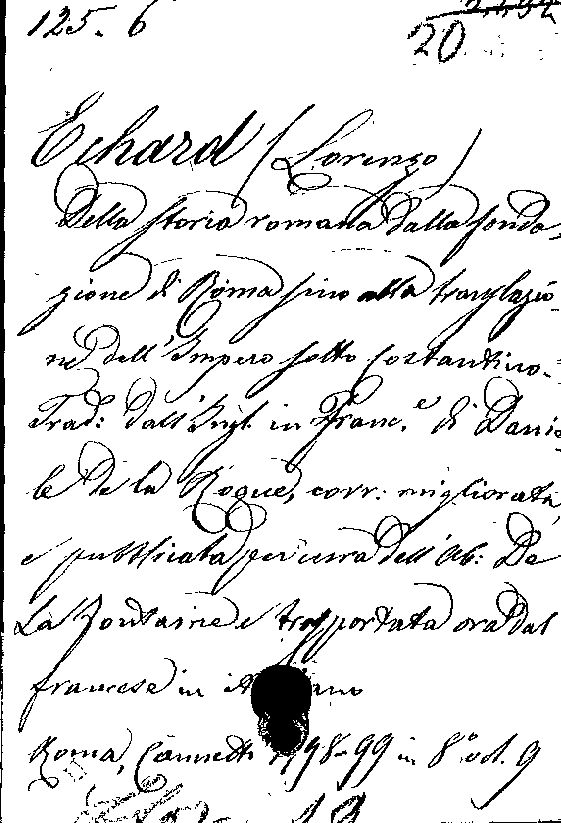 125. 6
20
Echard (Lorenzo)
Della storia romana dalla fonda-
zione di Roma sino alla traslazio-
ne dell'Impero sotto Costantino.
Trad: dall'Ingl. in Franc.e di Danie
le de la Roque, corr: migliorata
e pubblicata per cura dell'Ab: De
La Fontaine e trasportata ora dal
francese in
Roma, 1798-99 in 8° vol. 9